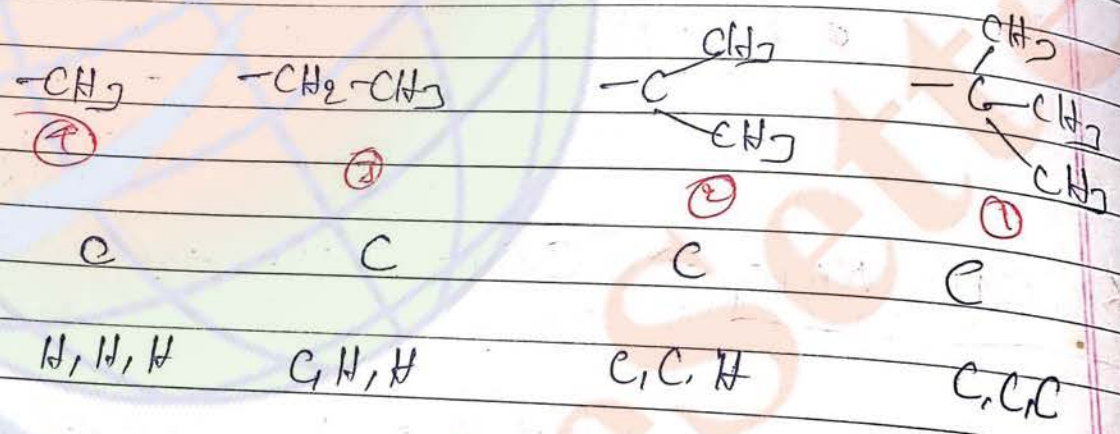 CH3 CH3
-CH3 -CH2-CH3 -C -C-CH3
CH3 CH3
④ ③ ② ①
C C C C
H, H, H C, H, H C, C, H C, C, C